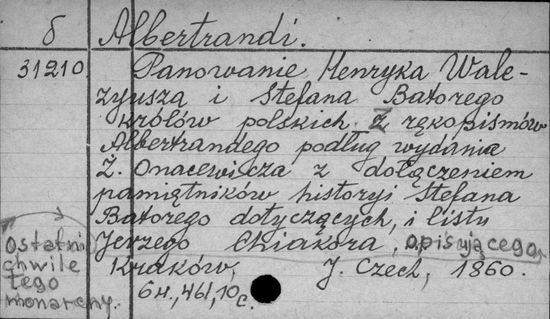 δ Albertrandi.
31210. Panowanie Henryka Wale-
zyusza i Stefana Batorego
królów polskich. Z rękopismów
Albertrandego podług wydania
Ż. Onacewicza z dołączeniem
pamiętników historyi Stefana
Batorego dotyczących, i listu
Jerzego Chiakora, opisującego,
Ostatni
chwile
tego
monarchy.
Kraków, J. Czech, 1860.
64., 461, 10 c.